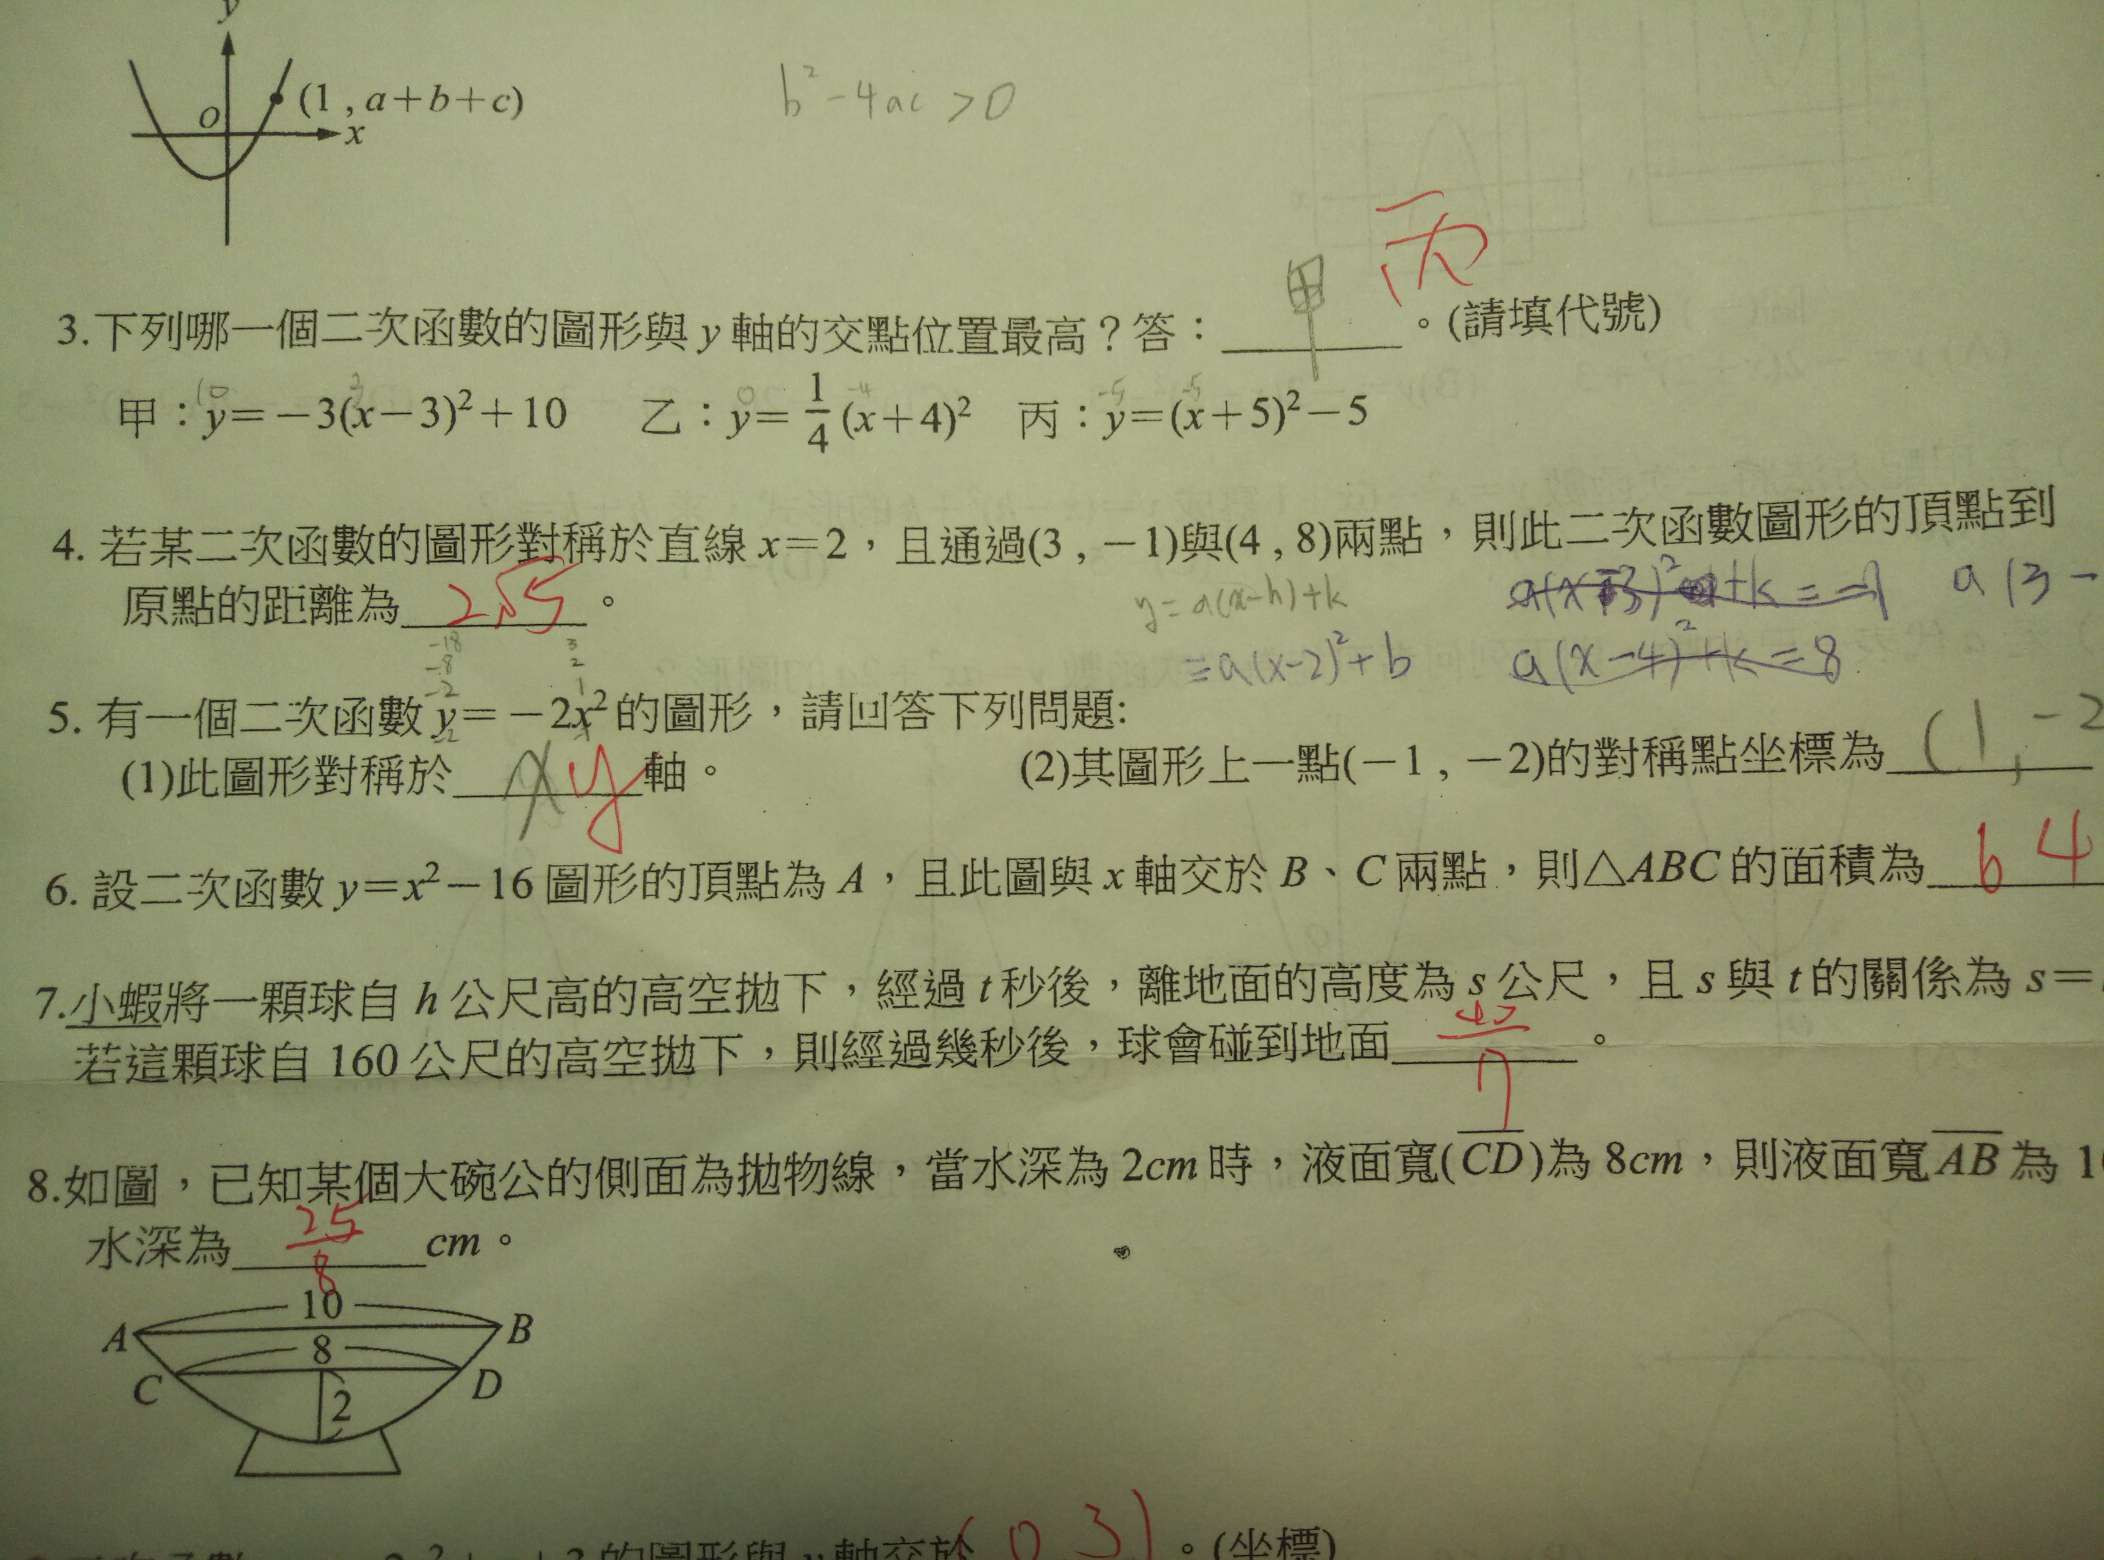 y
O
x
(1 , a+b+c)
b²-4ac>0
丙
3.下列哪一個二次函數的圖形與 y 軸的交點位置最高？答：甲。(請填代號)
甲：y=-3(x-3)²+10 乙：y=1/4(x+4)² 丙：y=(x+5)²-5
4. 若某二次函數的圖形對稱於直線 x=2，且通過(3 , -1)與(4 , 8)兩點，則此二次函數圖形的頂點到
原點的距離為 2√5。
y=a(x-h)+k
=a(x-2)²+b
a(x-4)²+k=8
a(3-
-18
-8
-2
3
2
1
5. 有一個二次函數 y=-2x²的圖形，請回答下列問題:
(1)此圖形對稱於 x y 軸。 (2)其圖形上一點(-1 , -2)的對稱點坐標為 (1, -2
6. 設二次函數 y=x²-16 圖形的頂點為 A，且此圖與 x 軸交於 B、C 兩點，則△ABC 的面積為 64
7.小蝦將一顆球自 h 公尺高的高空拋下，經過 t 秒後，離地面的高度為 s 公尺，且 s 與 t 的關係為 s=
若這顆球自 160 公尺的高空拋下，則經過幾秒後，球會碰到地面。
8.如圖，已知某個大碗公的側面為拋物線，當水深為 2cm 時，液面寬(CD)為 8cm，則液面寬 AB 為 1
水深為 25/8 cm。
10
A B
8
C D
2
的圖形與 y 軸交於(0 3)。(坐標)